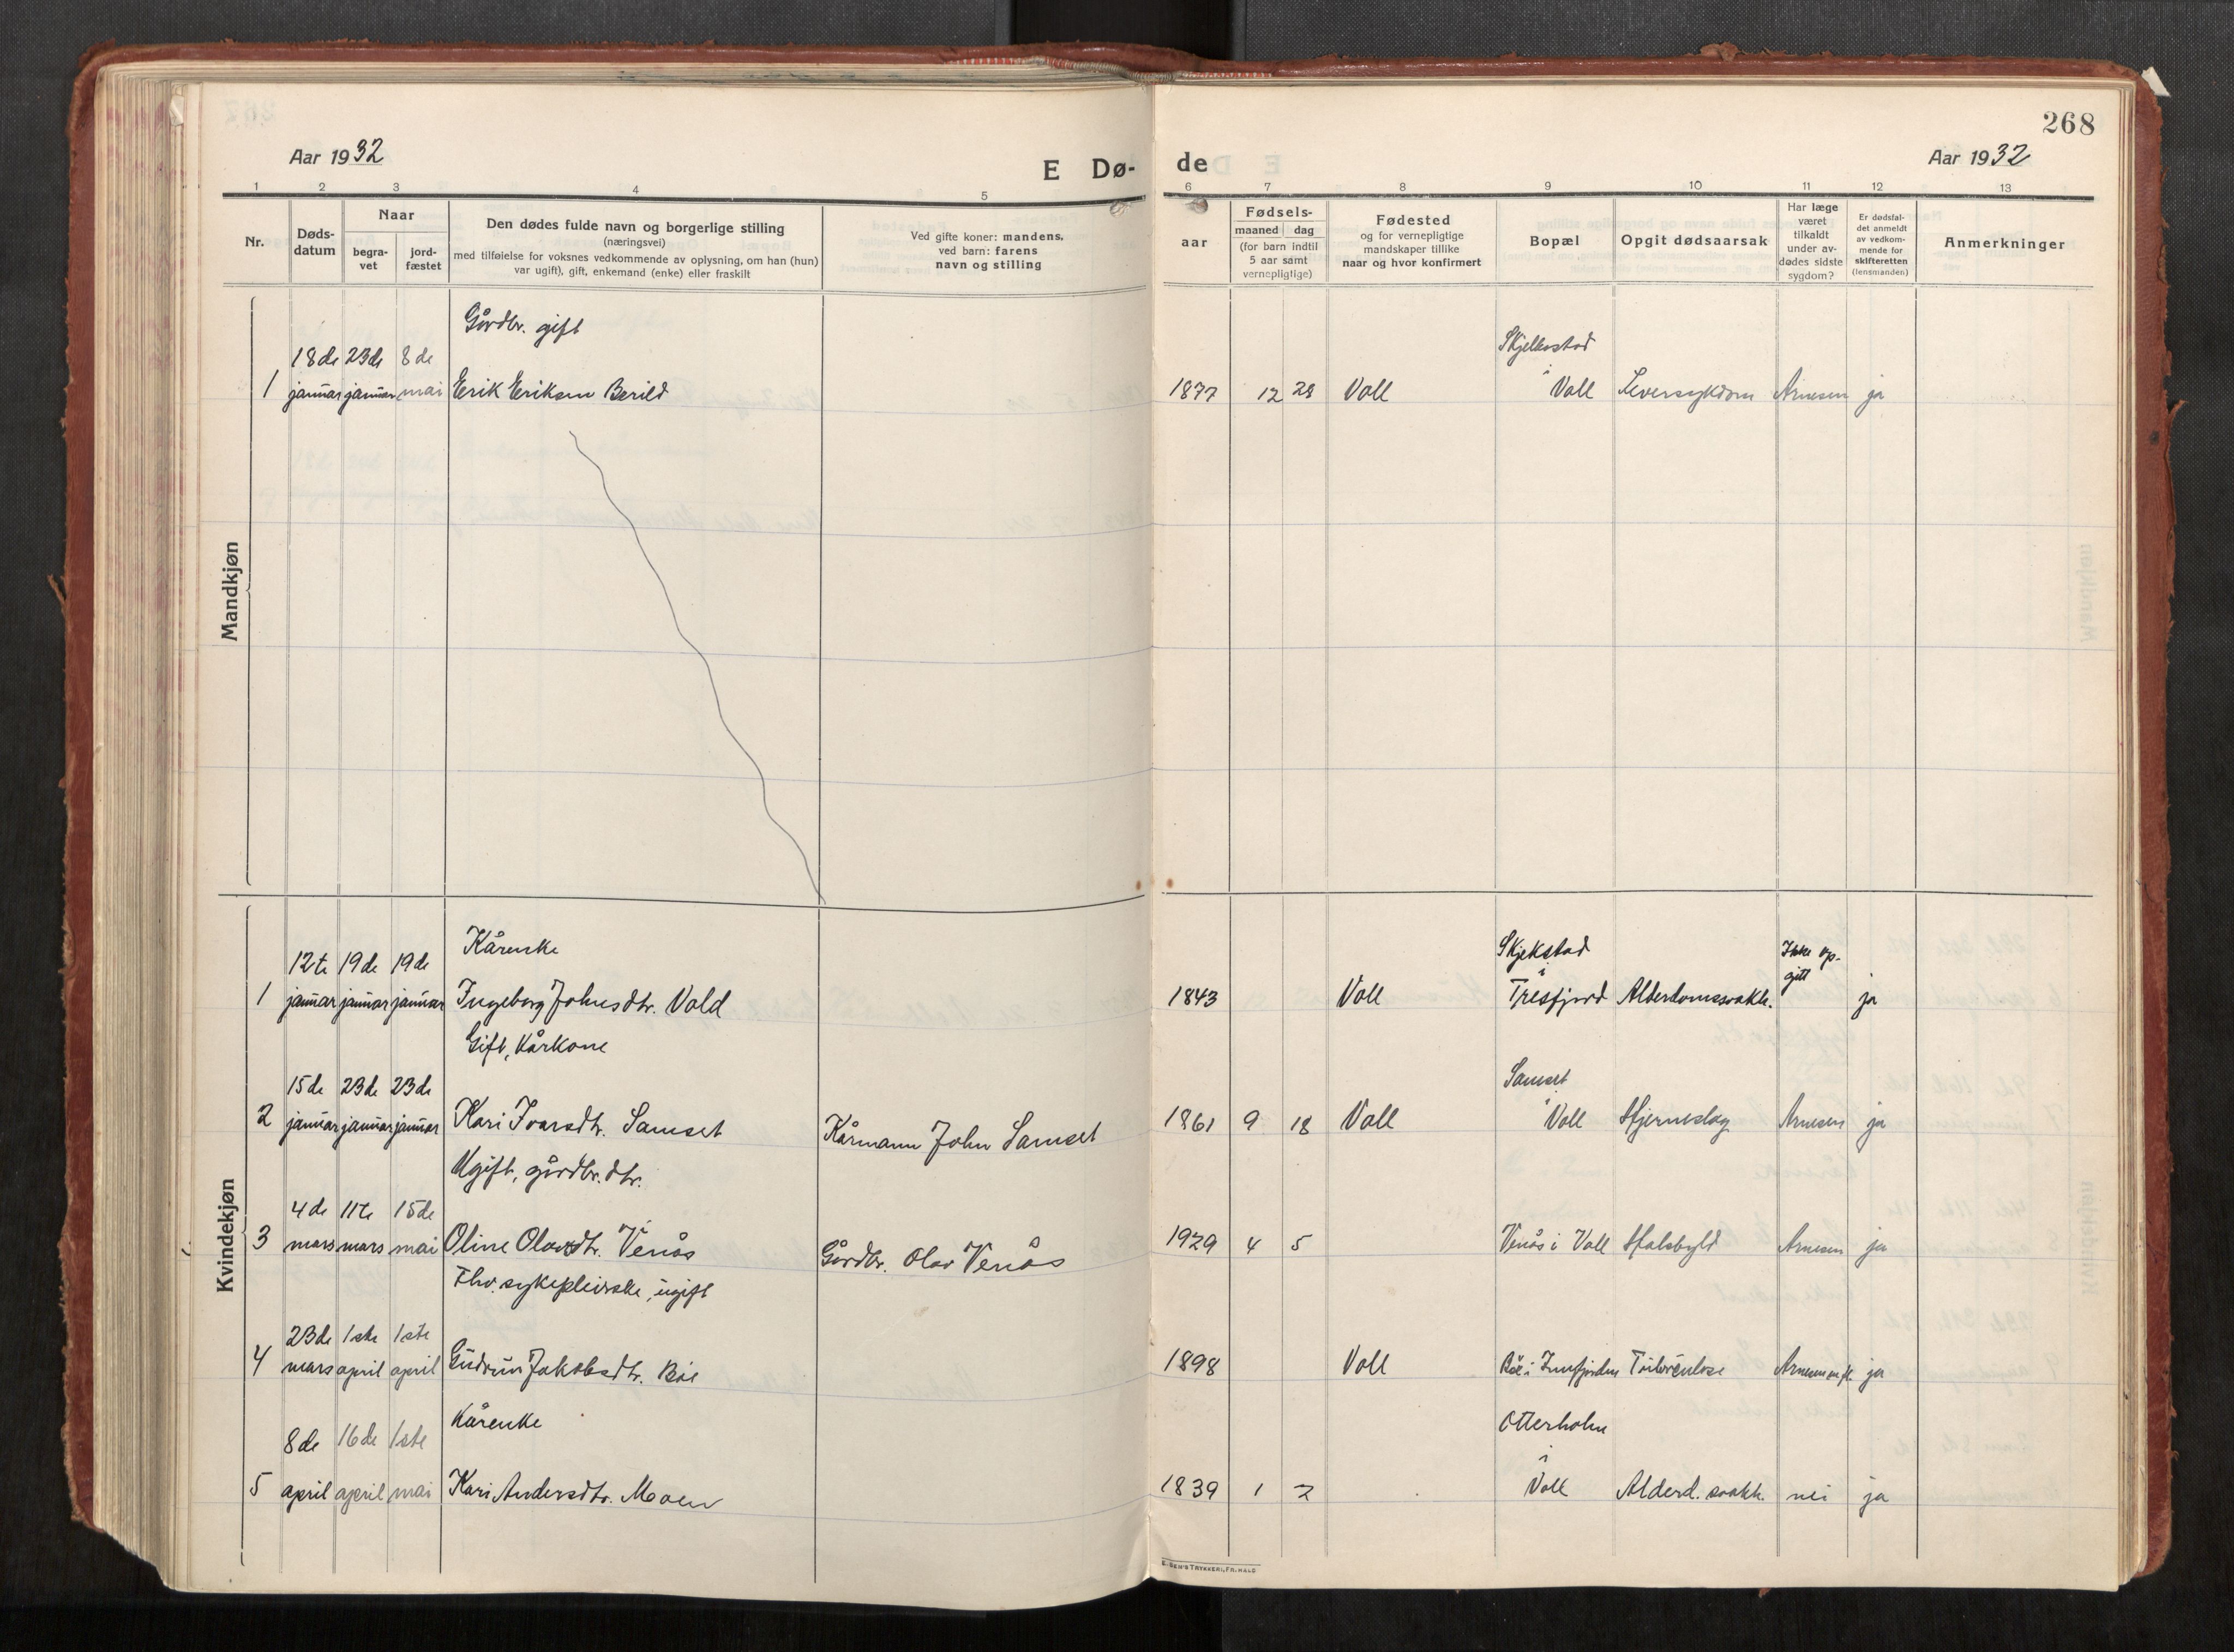 268
Aar 1932
E Dø-
de
Aar 1932
1 2 3 4 5 6 7 8 9 10 11 12 13
Nr.
Døds-
datum
Naar
begra-
vet
jord-
fæstet
Den dødes fulde navn og borgerlige stilling
(næringsvei)
med tilføielse for voksnes vedkommende av oplysning, om han (hun)
var ugift), gift, enkemand (enke) eller fraskilt
Ved gifte koner: mandens,
ved barn: farens
navn og stilling
aar
Fødsels-
maaned dag
(for barn indtil
5 aar samt
vernepligtige)
Fødested
og for vernepligtige
mandskaper tillike
naar og hvor konfirmert
Bopæl
Opgit dødsaarsak
Har læge
været
tilkaldt
under av-
dødes sidste
sygdom?
Er dødsfal-
det anmeldt
av vedkom-
mende for
skifteretten
(lensmanden)
Anmerkninger
Mandkjøn
Gårdbr. gift
18de 23de 8de Skjelkestad
i
1 januar januar mai Erik Eriksen Berild 1877 12 28 Voll Voll Leversykdom Arnesen ja
Kvindekjøn
Kårenke Skjekstad Ikke op-
12te 19de 19de i gitt
1 januar januar januar Ingeborg Johnsdtr. Vold 1843 Voll Tresfjord Alderdomssvakh. ja
Gift, Kårkone
15de 23de 23de Samset
i
2 januar januar januar Kari Ivarsdtr. Samset Kårmann John Samset 1861 9 18 Voll Voll Hjerneslag Arnesen ja
Ugift, gårdbr. dtr.
4de 11te 15de
3 mars mars mai Oline Olavsdtr. Venås Gårdbr. Olav Venås 1929 4 5 Venås i Voll Halsbyld Arnesen ja
Fhv. sykepleierske, ugift
23de 1ste 1ste
4 mars april april Gudrun Jakobsdtr. Bøe 1898 Voll Bøe i Innfjorden Tuberculose Arnesen ja
Kårenke Otterholm
8de 16de 1ste i
5 april april mai Kari Andersdtr. Moen 1839 1 2 Voll Alderd. svakh. nei ja
TRYKKERI, FR.HALD